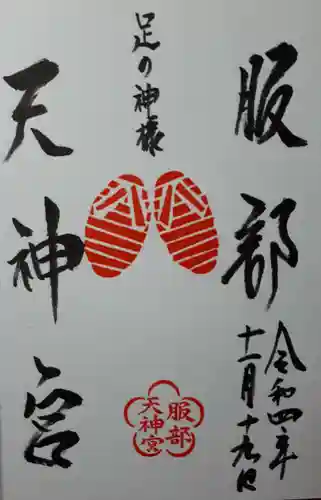 服部
天神宮
足の神様
令和四年
十一月十九日
服部
天神宮